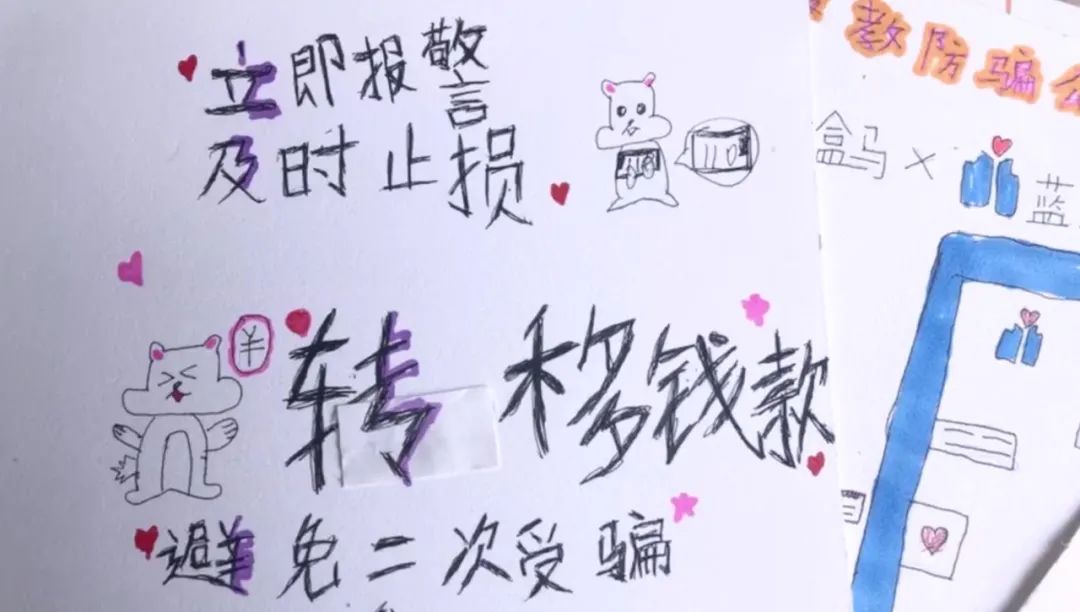 立即报警
及时止损
¥
转移钱款
避免二次受骗
教防骗
盒马×
蓝